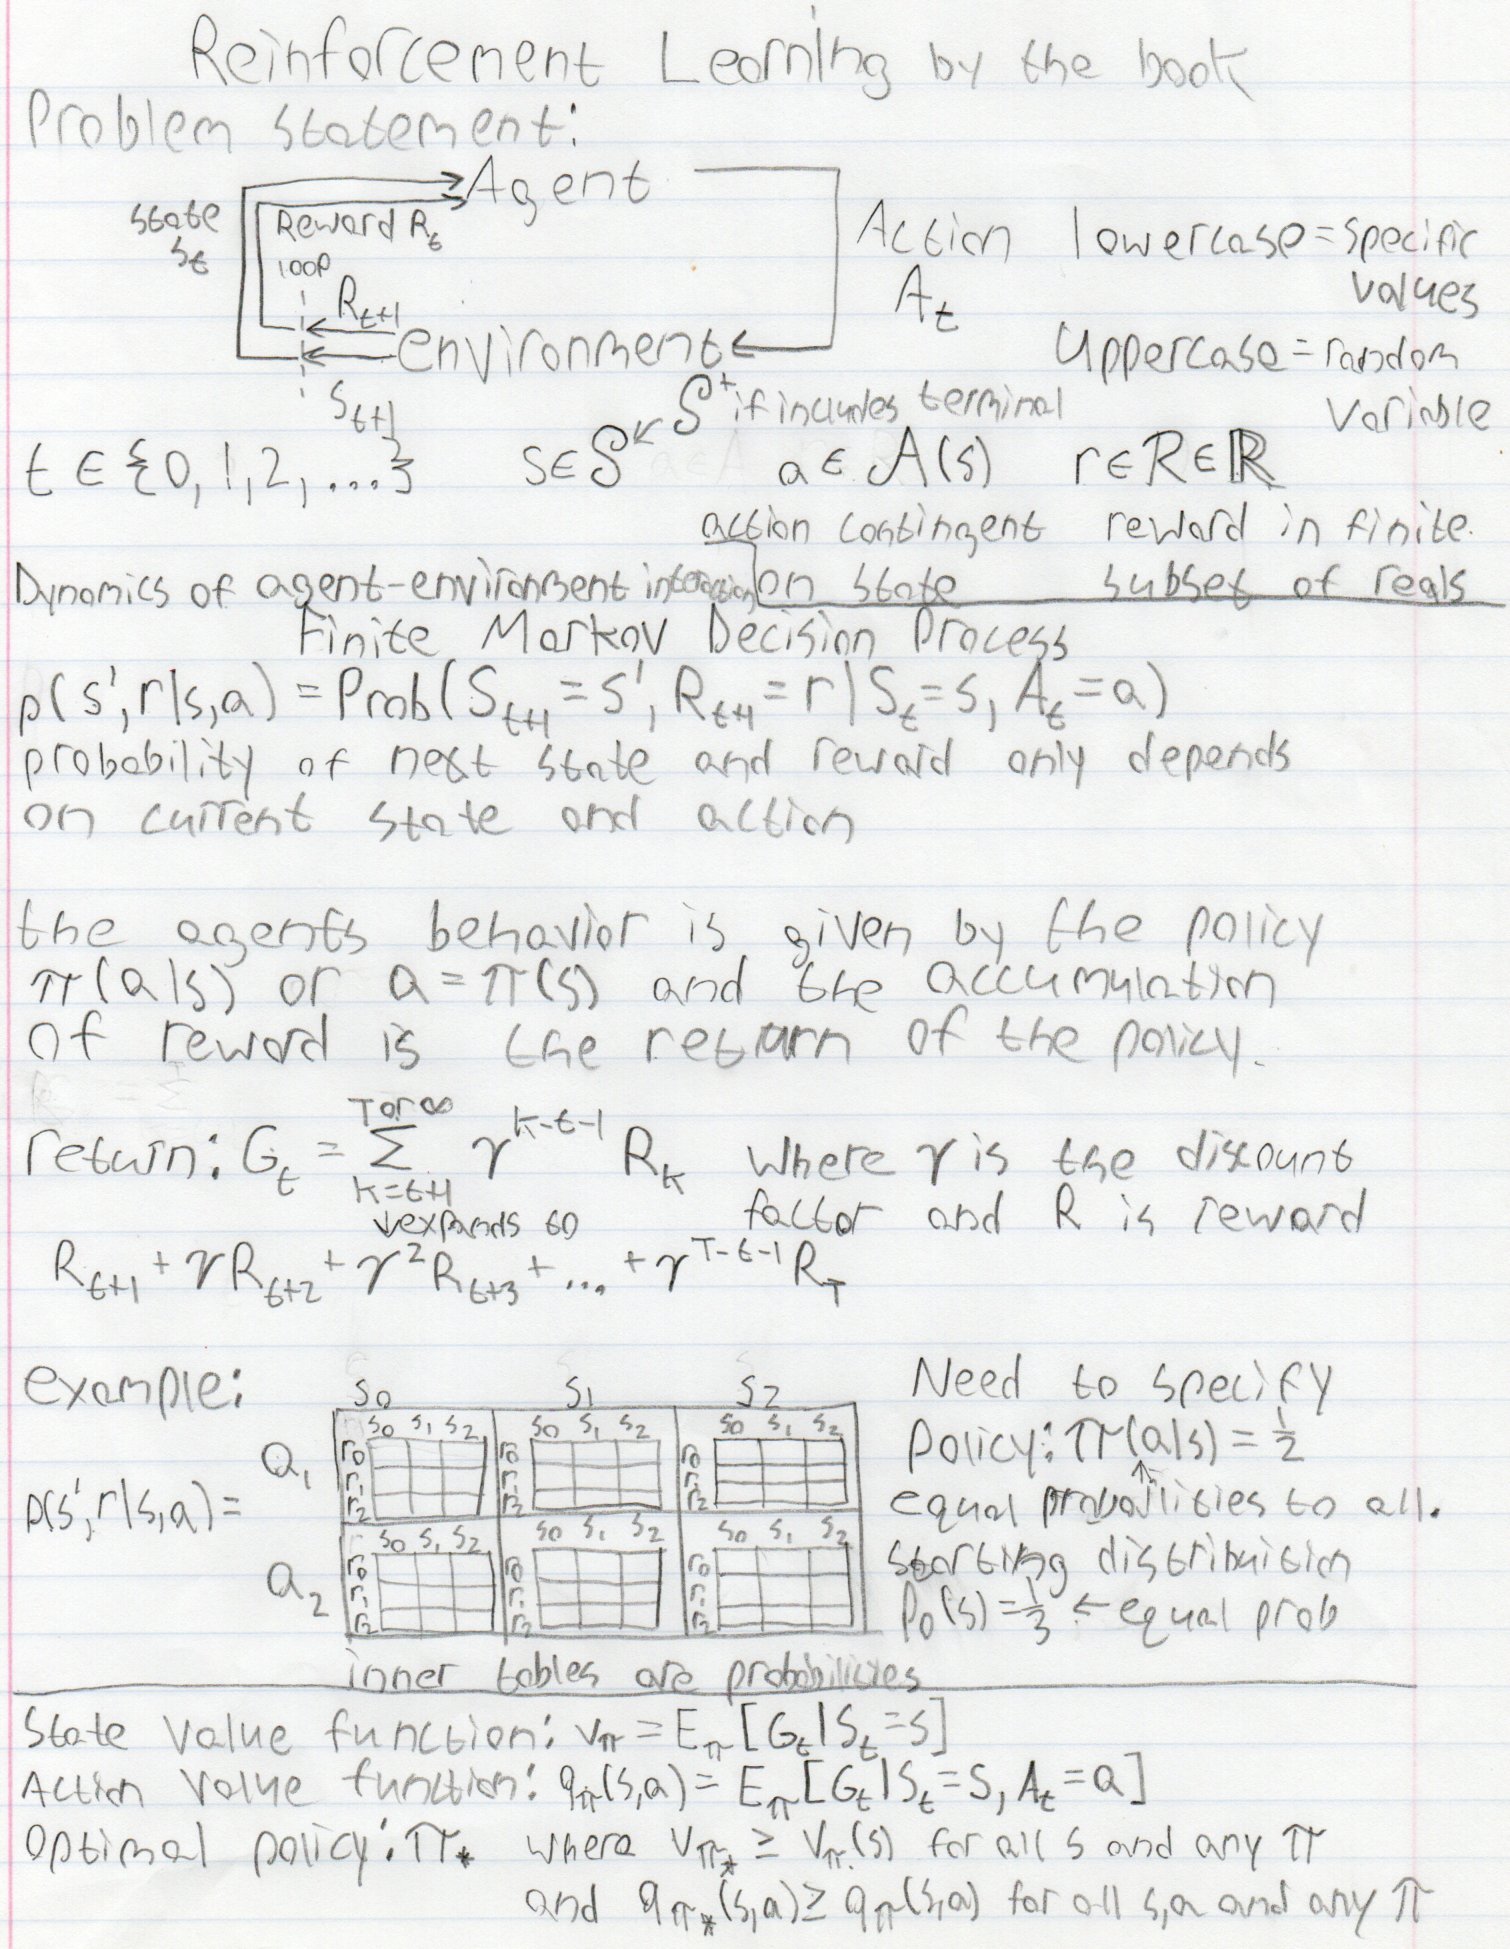 Reinforcement Learning by the book
Problem statement:
Agent
State
S_t
Reward R_t
loop
R_{t+1}
environment
S_{t+1}
Action
A_t
lowercase = specific
values
Uppercase = random
variable
S⁺ if includes terminal
t ∈ {0, 1, 2, ...}
s ∈ S
a ∈ A(s)
r ∈ R ∈ ℝ
action contingent
on state
reward in finite
subset of reals
Dynamics of agent-environment interaction
Finite Markov Decision Process
p(s', r|s, a) = Prob(S_{t+1} = s', R_{t+1} = r | S_t = s, A_t = a)
probability of next state and reward only depends
on current state and action
the agents behavior is given by the policy
π(a|s) or a = π(s) and the accumulation
of reward is the return of the policy.
return: G_t = Σ_{k=t+1}^{T or ∞} γ^{k-t-1} R_k where γ is the discount
↓ expands to
factor and R is reward
R_{t+1} + γR_{t+2} + γ²R_{t+3} + ... + γ^{T-t-1} R_T
example:
S_0 S_1 S_2
a_1
s_0 s_1 s_2 s_0 s_1 s_2 s_0 s_1 s_2
r_0 r_0 r_0
r_1 r_1 r_1
r_2 r_2 r_2
p(s', r|s, a) =
a_2
s_0 s_1 s_2 s_0 s_1 s_2 s_0 s_1 s_2
r_0 r_0 r_0
r_1 r_1 r_1
r_2 r_2 r_2
inner tables are probabilities
Need to specify
Policy: π(a|s) = 1/2
equal probailities to all.
starting distribuition
p_0(s) = 1/3 ← equal prob
State value function: v_π = E_π[G_t|S_t = s]
Action value function: q_π(s,a) = E_π[G_t|S_t = s, A_t = a]
Optimal policy: π_* where v_{π_*} ≥ v_π(s) for all s and any π
and q_{π_*}(s,a) ≥ q_π(s,a) for all s,a and any π